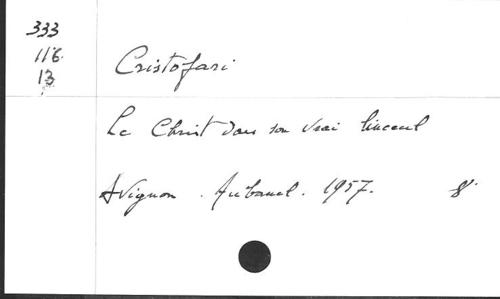 333
116.
13
Cristofari
Le Christ dans son vrai linceul
Avignon. Aubanel. 1957. 8°